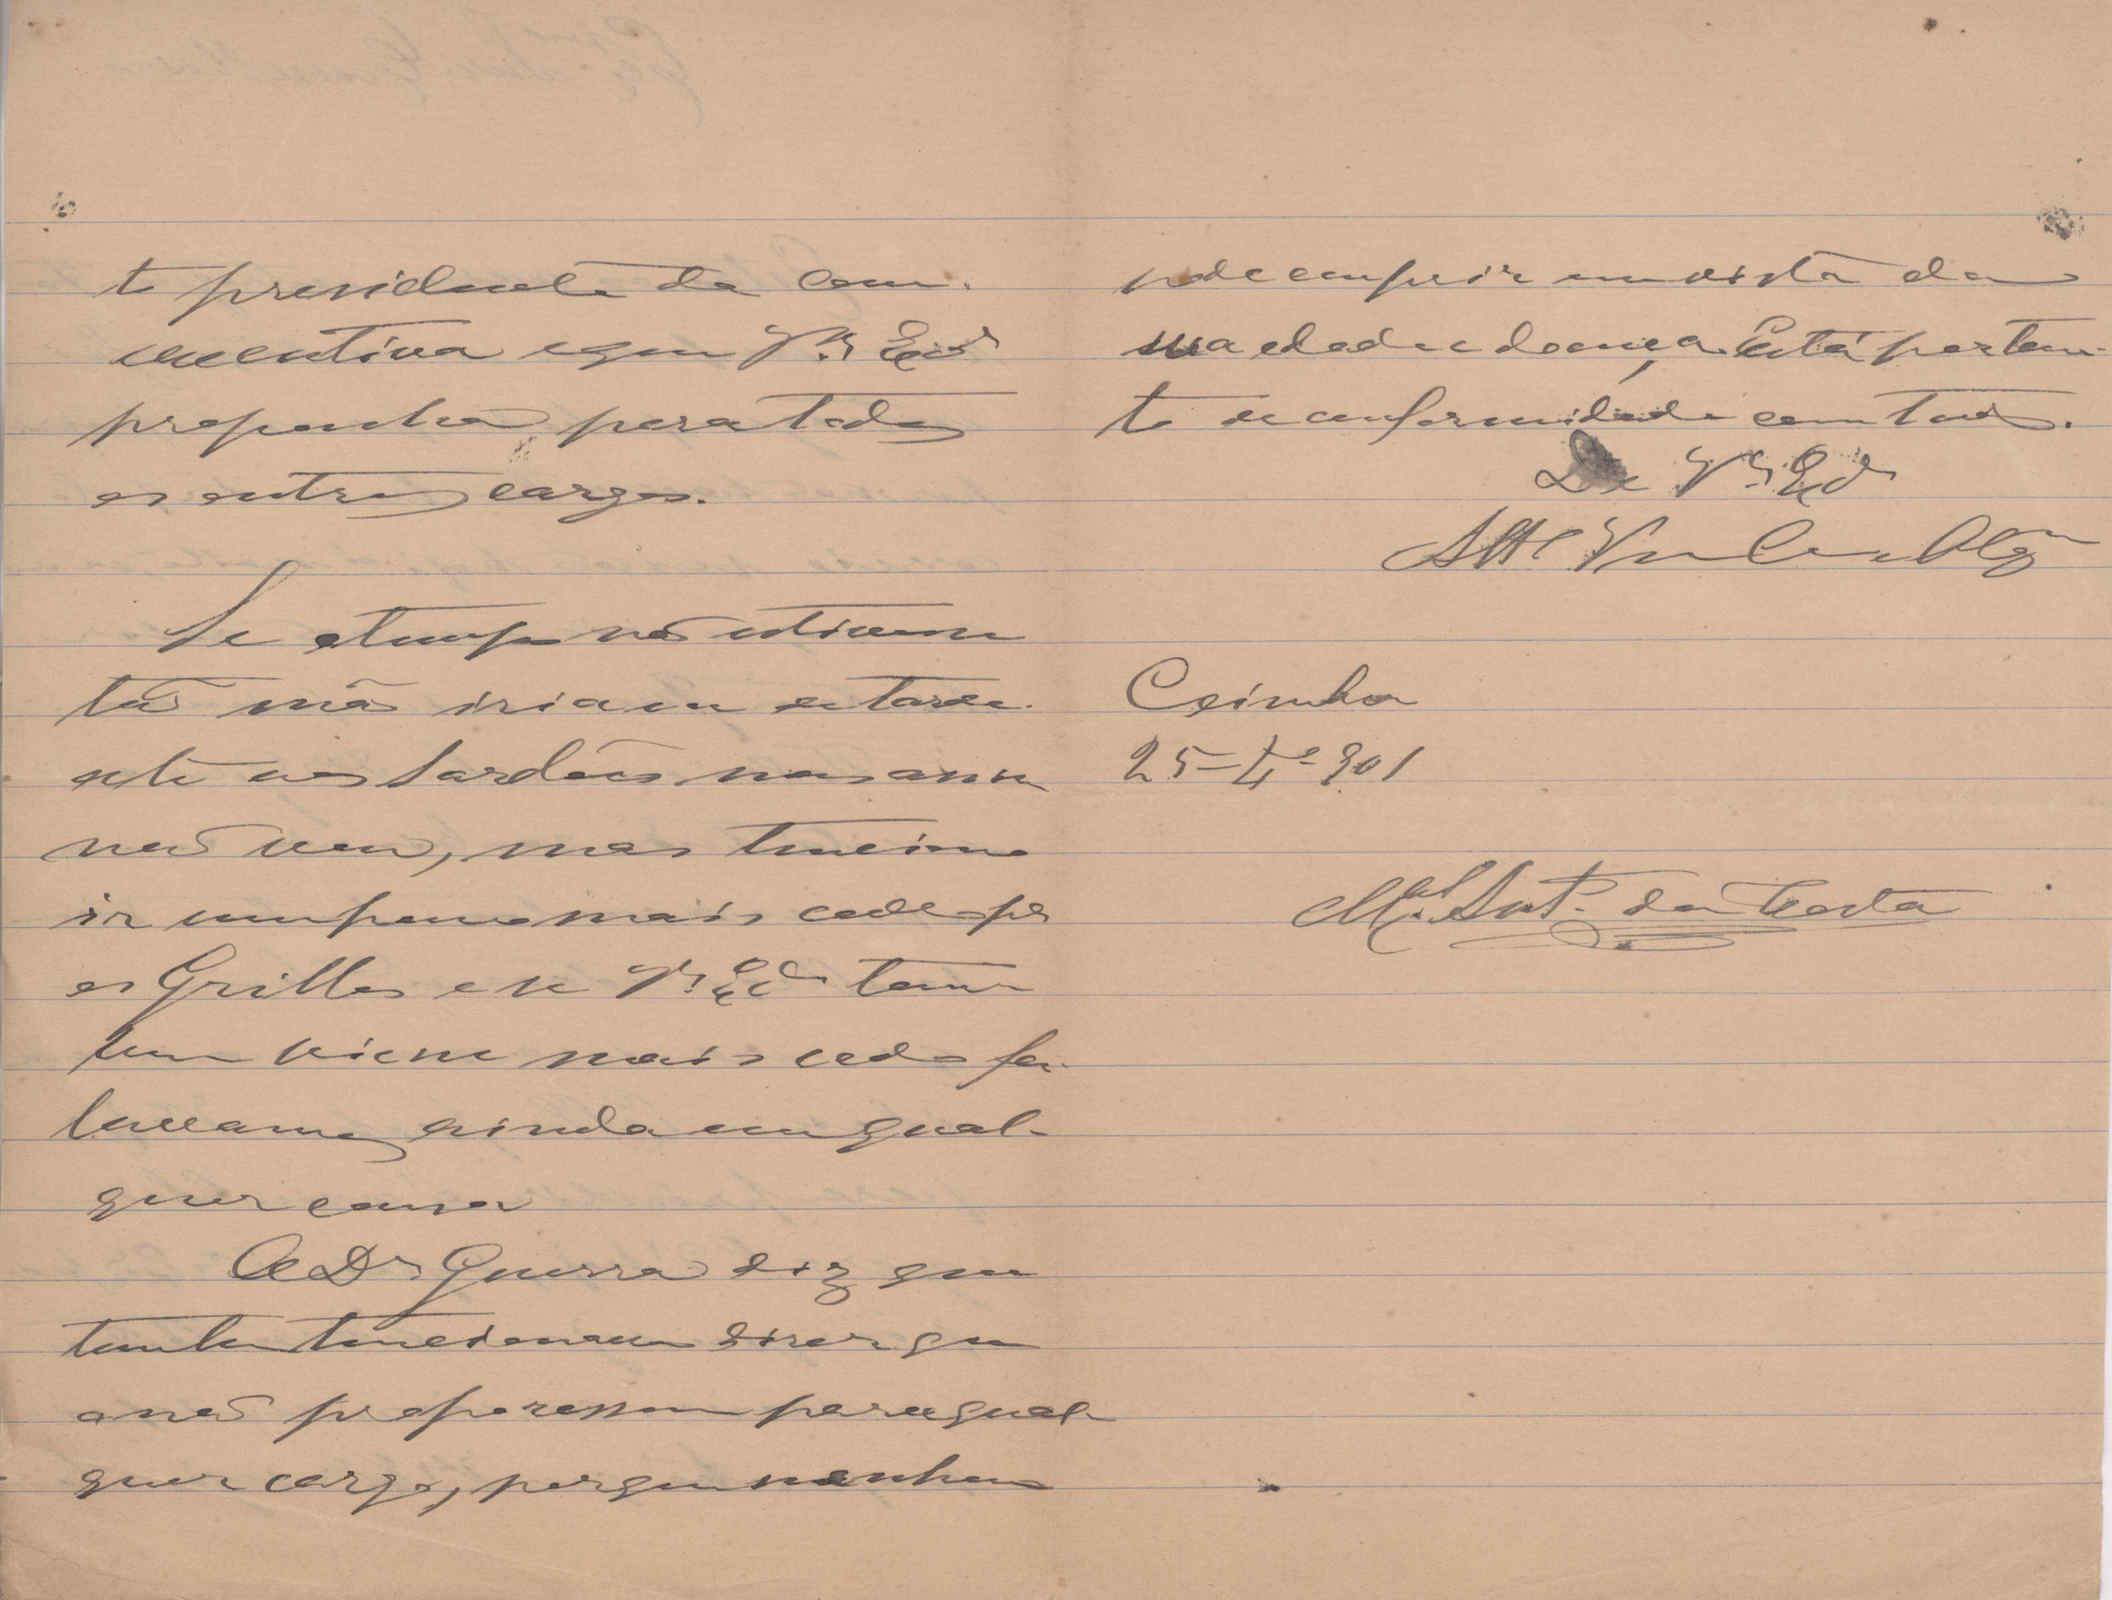 te presidente da com.
executiva e que V.ª Ex.cia
proponha para todos
os outros cargos.
Se o tempo não estivesse
tão mão iriam esta tarde
até aos Sardões mas assim
não vou, mas tenciono
ir um pouco mais cedo p.ª
os Grillos e se V.ª Ex.cia tam
bem viesse mais cedo fa-
lavamos ainda em qual-
quer cousa
O D.r Guerra diz que
tambem tencionava dizer que
o não proporessem para qual-
quer cargo, porque nenhum
pode cumprir em vista da
sua edade e doença. Está portan-
to de conformidade com tudo.
De V.ª Ex.cia
Att.º V.or C.do e Obg.mo
Coimbra
25-4º-901
M.el Ant.º da Costa